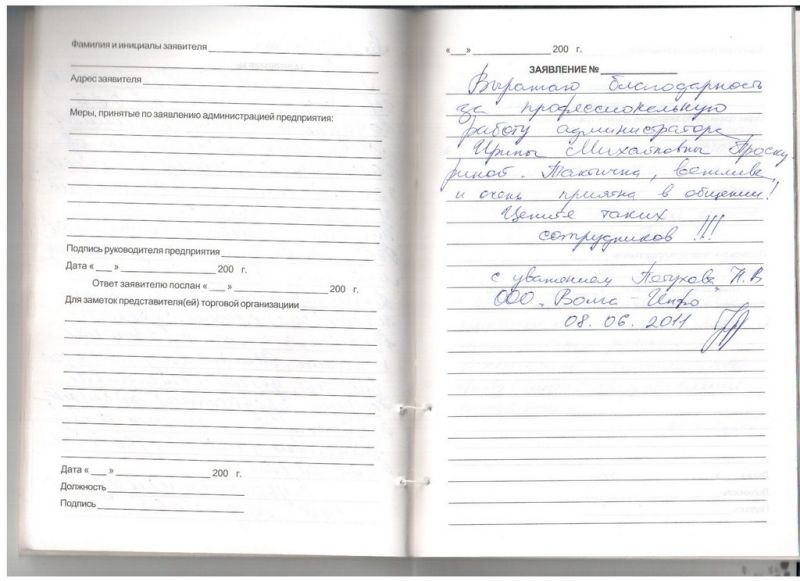 Фамилия и инициалы заявителя
Адрес заявителя
Меры, принятые по заявлению администрацией предприятия:
Подпись руководителя предприятия
Дата « ___ » ____________ 200 г.
Ответ заявителю послан « ___ » ____________ 200 г.
Для заметок представителя(ей) торговой организациии
Дата « ___ » ____________ 200 г.
Должность
Подпись
« ___ » ____________ 200 г.
ЗАЯВЛЕНИЕ № ____________
Выражаю благодарность
за профессиональную
работу администратора
Ирины Михайловны Проску
риной. Тактична, вежлива
и очень приятна в общении!
Цените таких
сотрудников !!!
с уважением Петухова Н.В
ООО „Волга - Инфо"
08. 06. 2011